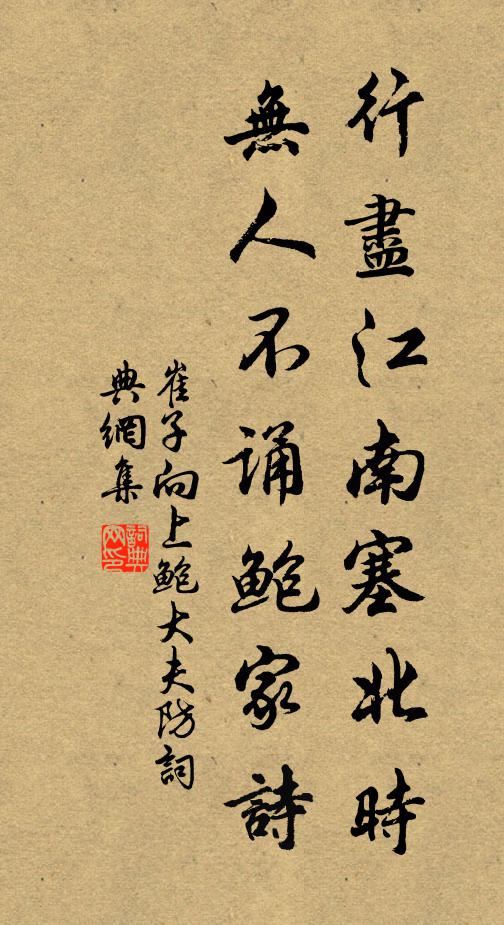 行盡江南塞北時
無人不誦鮑家詩
崔子向上鮑大夫防詞
典網集
詞典
网印